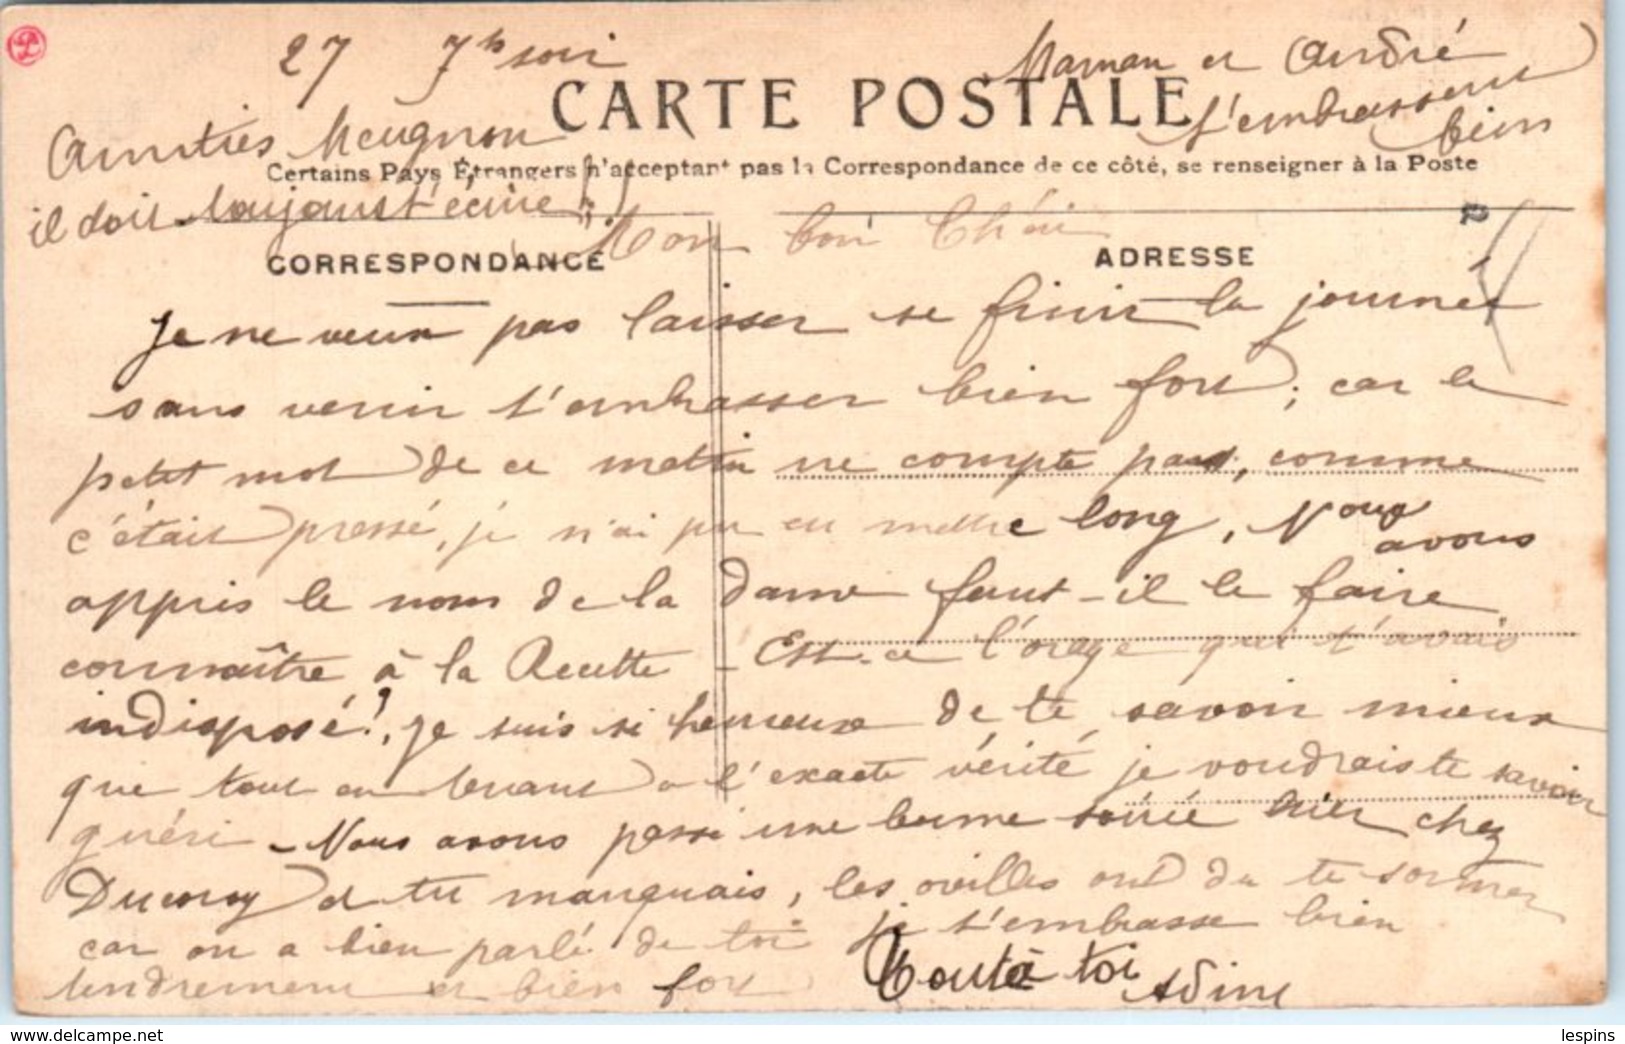 27 7h soir
Maman et André
t'embrassent
bien
CARTE POSTALE
Amitiés Meugnon
il doit toujours t'écrire
Certains Pays Étrangers n'acceptant pas la Correspondance de ce côté, se renseigner à la Poste
Mon bon Chéri
CORRESPONDANCE
ADRESSE
Je ne veux pas laisser se finir la journée
sans venir t'embrasser bien fort; car le
petit mot de ce matin ne compte pas, comme
c'était pressé, je n'ai pu en mettre long, Nous
avons
appris le nom de la dame faut-il le faire
connaître à la Recette - Est-ce l'orage qui t'avais
indisposé!, je suis si heureuse de te savoir mieux
que tout en tenant a l'exacte vérité je voudrais te savoir
guéri - Nous avons passé une bonne soirée hier chez
Ducoroy et tu manquais, les oreilles ont du te sonner
car on a bien parlé de toi je t'embrasse bien
tendrement et bien fort Toute à toi
Adine
delcampe.net
lespins